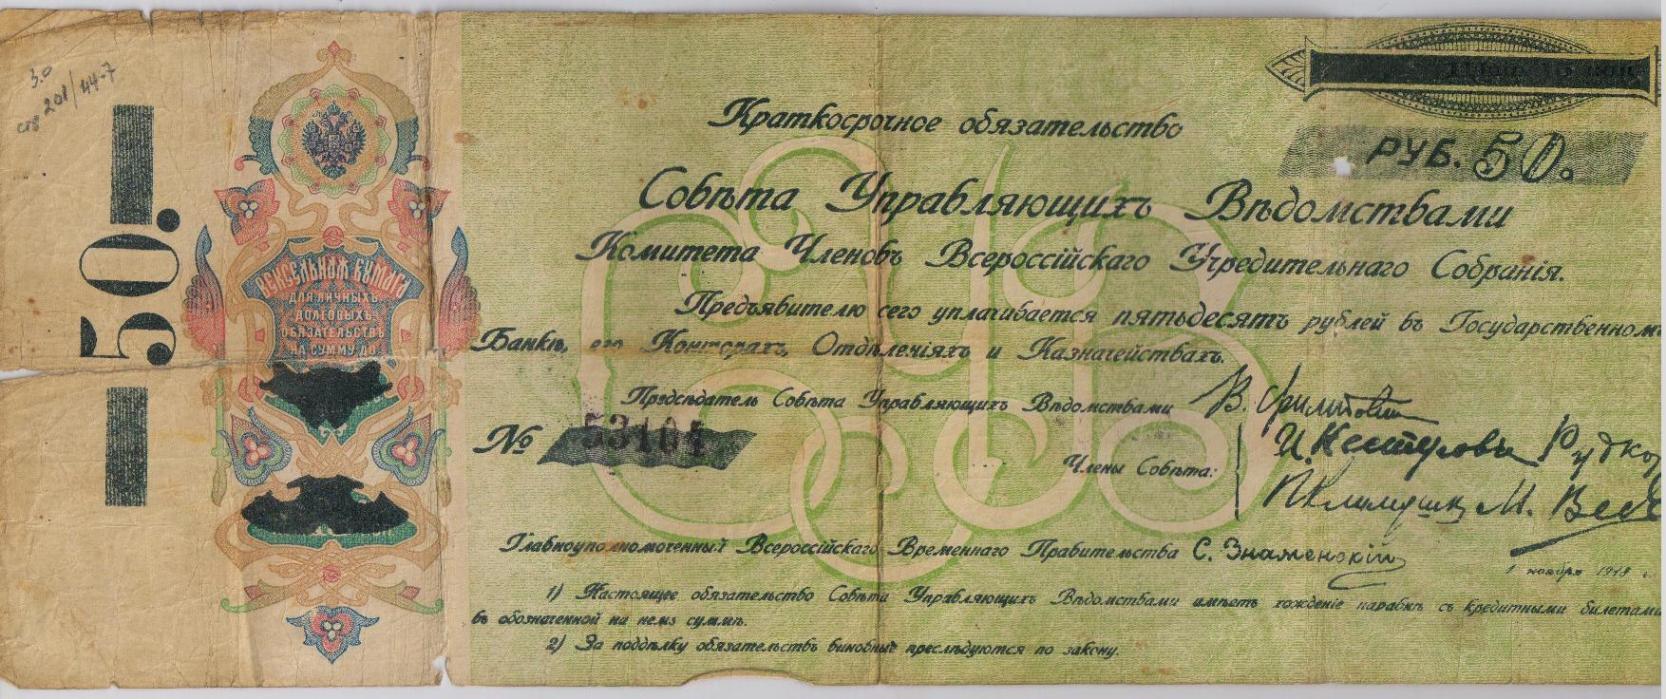 3.0
стр 201/44-7
50.
ВЕКСЕЛЬНАЯ БУМАГА
ДЛЯ ЛИЧНЫХЪ
ДОЛГОВЫХЪ
ОБЯЗАТЕЛЬСТВЪ
НА СУММУ ДО
Краткосрочное обязательство
РУБ. 50.
Совѣта Управляющихъ Вѣдомствами
Комитета Членовъ Всероссійскаго Учредительнаго Собранія.
Предъявителю сего уплачивается пятьдесятъ рублей въ Государственномъ
Банкѣ, его Конторахъ, Отдѣленіяхъ и Казначействахъ.
Предсѣдатель Совѣта Управляющихъ Вѣдомствами В.
№ 53104
Члены Совѣта: И. Нестеровъ
П. Климушк М.
Главноуполномоченный Всероссійскаго Временнаго Правительства С. Знаменскій
1 ноября 1918 г.
1) Настоящее обязательство Совѣта Управляющихъ Вѣдомствами имѣетъ хожденіе наравнѣ съ кредитными билетами
въ обозначенной на немъ суммѣ.
2) За поддѣлку обязательствъ виновные преслѣдуются по закону.